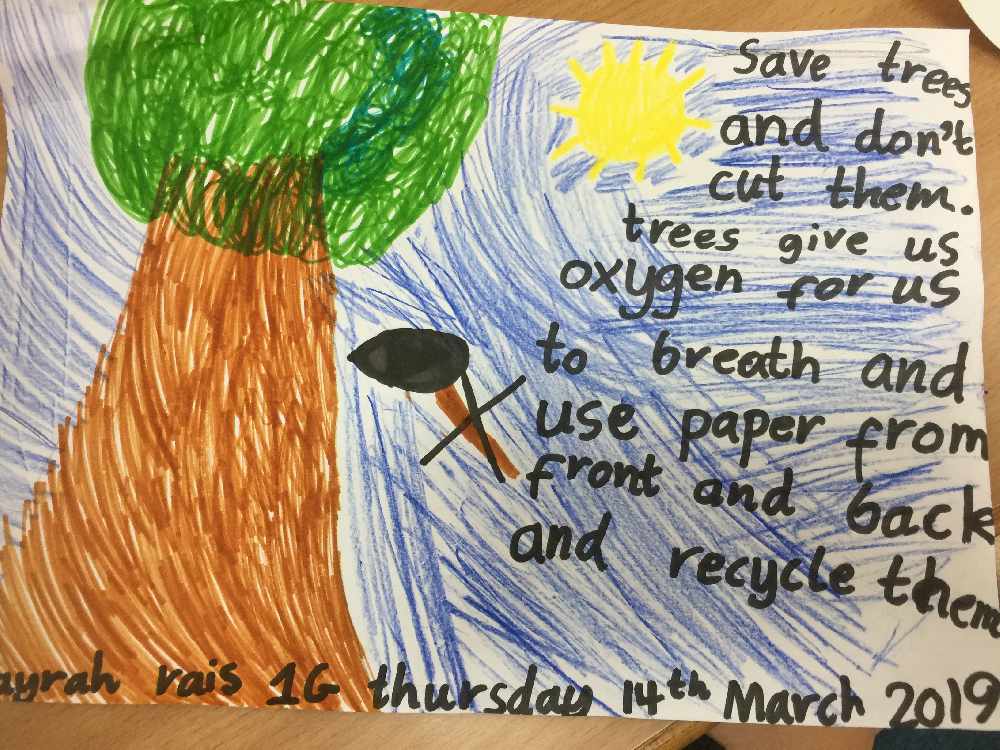 Save trees
and don't
cut them.
trees give us
oxygen for us
to breath and
use paper from
front and back
and recycle them
ayrah rais 1G thursday 14th March 2019